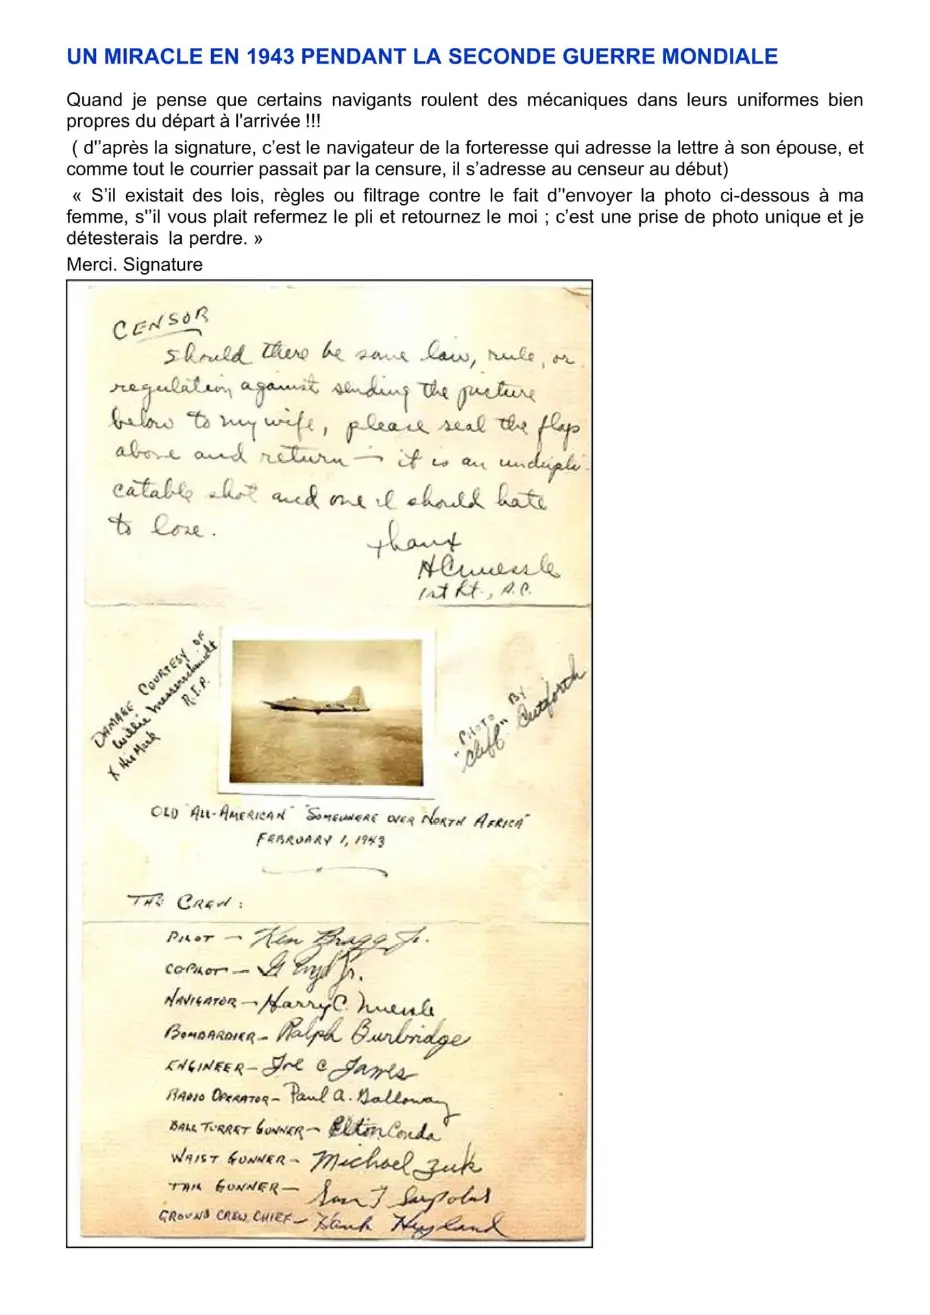 UN MIRACLE EN 1943 PENDANT LA SECONDE GUERRE MONDIALE
Quand je pense que certains navigants roulent des mécaniques dans leurs uniformes bien
propres du départ à l'arrivée !!!
( d''après la signature, c’est le navigateur de la forteresse qui adresse la lettre à son épouse, et
comme tout le courrier passait par la censure, il s’adresse au censeur au début)
« S’il existait des lois, règles ou filtrage contre le fait d''envoyer la photo ci-dessous à ma
femme, s''il vous plait refermez le pli et retournez le moi ; c’est une prise de photo unique et je
détesterais la perdre. »
Merci. Signature
CENSOR
Should there be some law, rule, or
regulation against sending the picture
below to my wife, please seal the flap
above and return — it is an undupli-
catable shot and one I should hate
to lose.
Thanx
HCNuessle
1st Lt., A.C.
DAMAGE COURTESY OF
Willie Messerschmidt
R.I.P.
X His Mark
PHOTO BY
"Cliff" Cutforth
OLD "ALL-AMERICAN" "SOMEWHERE OVER NORTH AFRICA"
FEBRUARY 1, 1943
THE CREW:
PILOT — Ken Bragg Jr.
COPILOT — Jr.
NAVIGATOR — Harry C. Nuessle
BOMBARDIER — Ralph Burbridge
ENGINEER — Joe C James
RADIO OPERATOR — Paul A. Galloway
BALL TURRET GUNNER — Elton Conda
WAIST GUNNER — Michael Zuk
TAIL GUNNER — Sam T Sarpolus
GROUND CREW CHIEF — Hank Hyland